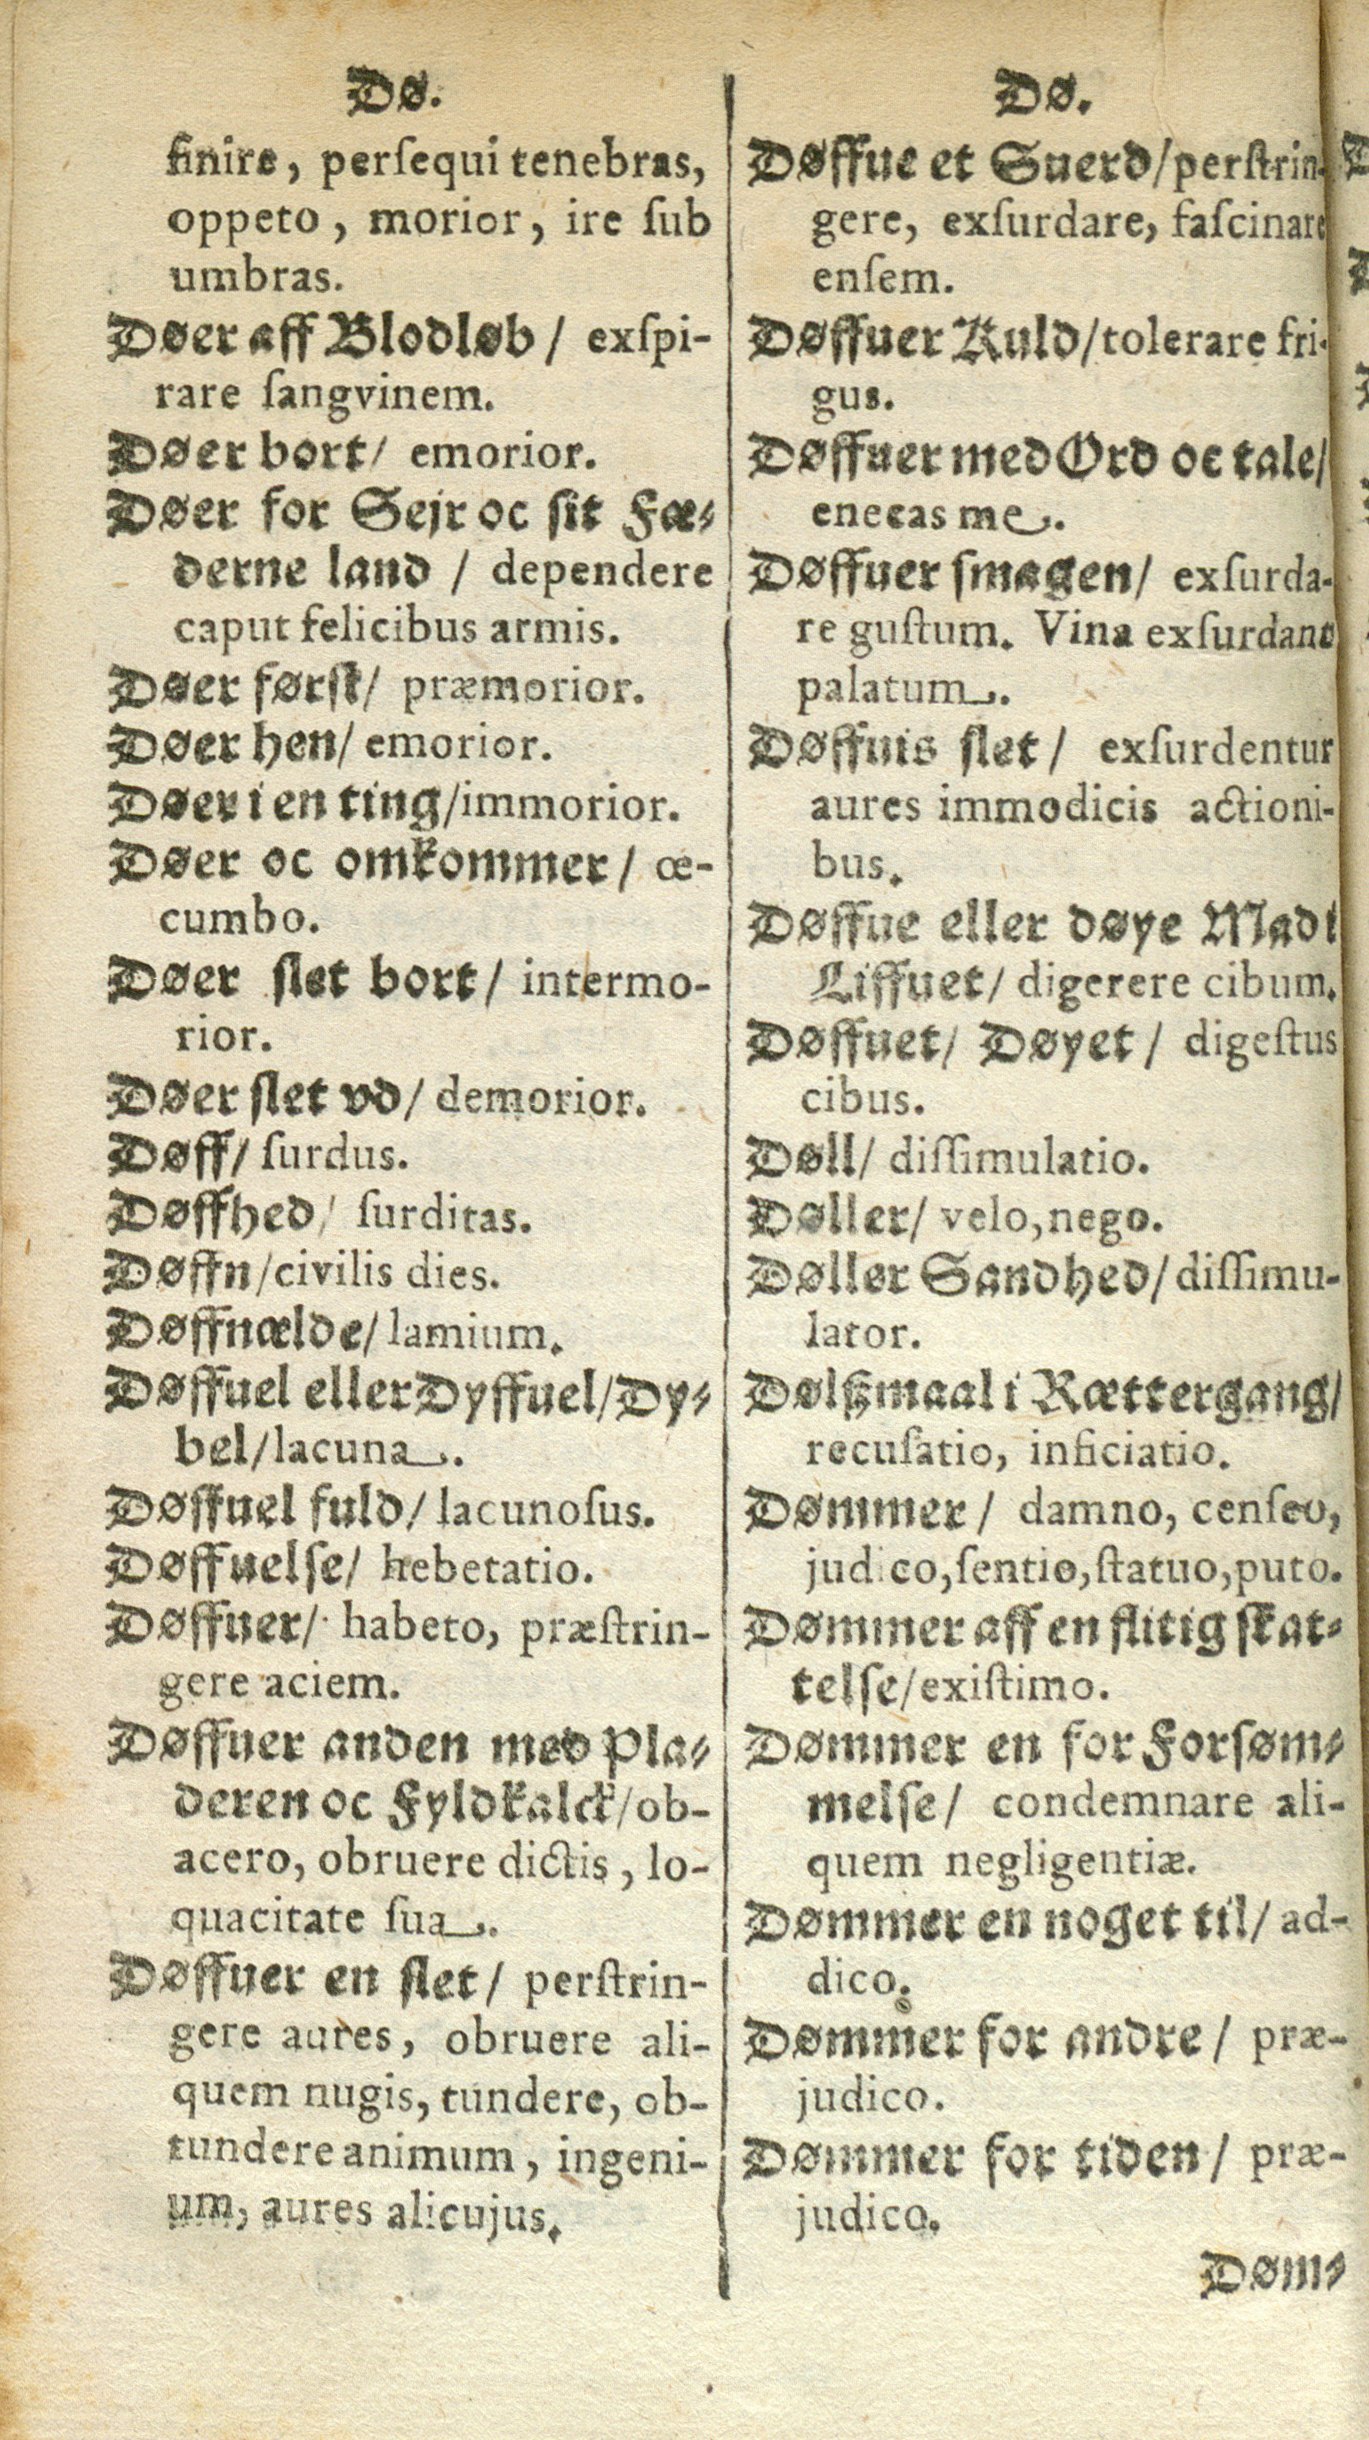 Dø.
finire, perſequi tenebras,
oppeto, morior, ire ſub
umbras.
Døer aff Blodløb / exſpi-
rare ſangvinem.
Døer bort / emorior.
Døer for Sejr oc ſit Fæ-
derne land / dependere
caput felicibus armis.
Døer førſt / præmorior.
Døer hen / emorior.
Døer i en ting / immorior.
Døer oc omkommer / œ-
cumbo.
Døer ſlet bort / intermo-
rior.
Døer ſlet vd / demorior.
Døff / ſurdus.
Døffhed / ſurditas.
Døffn / civilis dies.
Døffnælde / lamium.
Døffuel eller Dyffuel / Dy-
bel / lacuna.
Døffuel fuld / lacunoſus.
Døffuelſe / hebetatio.
Døffuer / habeto, præſtrin-
gere aciem.
Døffuer anden med Pla-
deren oc Fyldkalck / ob-
acero, obruere dictis, lo-
quacitate ſua.
Døffuer en ſlet / perſtrin-
gere aures, obruere ali-
quem nugis, tundere, ob-
tundere animum, ingeni-
um, aures alicujus.
Dø.
Døffue et Suerd / perſtrin-
gere, exſurdare, faſcinare
enſem.
Døffuer Kuld / tolerare fri-
gus.
Døffuer med Ord oc tale /
enecas me.
Døffuer ſmagen / exſurda-
re guſtum. Vina exſurdant
palatum.
Døffuis ſlet / exſurdentur
aures immodicis actioni-
bus.
Døffue eller døye Mad i
Liffuet / digerere cibum.
Døffuet / Døyet / digeſtus
cibus.
Døll / diſſimulatio.
Døller / velo, nego.
Døller Sandhed / diſſimu-
lator.
Dølßmaal i Rættergang /
recuſatio, inficiatio.
Dømmer / damno, cenſeo,
judico, ſentio, ſtatuo, puto.
Dømmer aff en flitig ſkat-
telſe / exiſtimo.
Dømmer en for Forſøm-
melſe / condemnare ali-
quem negligentiæ.
Dømmer en noget til / ad-
dico.
Dømmer for andre / præ-
judico.
Dømmer for tiden / præ-
judico.
Døm-